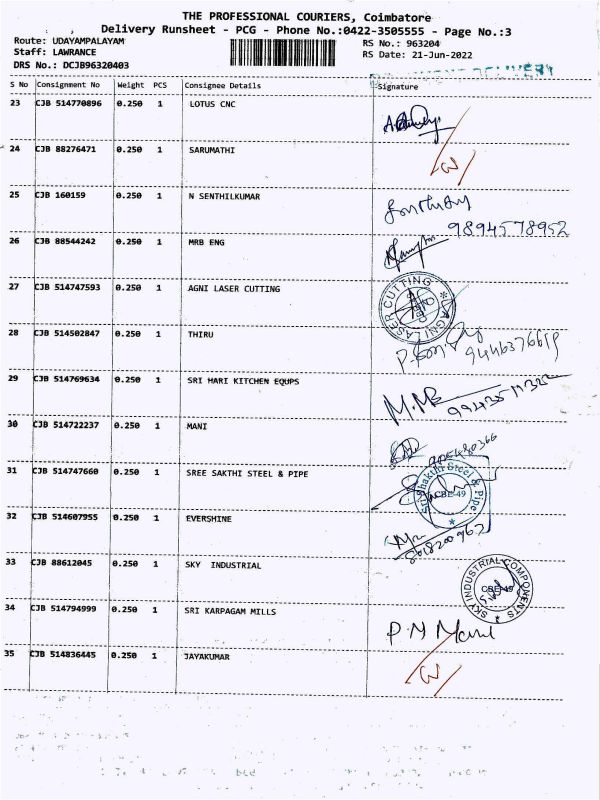 THE PROFESSIONAL COURIERS, Coimbatore
Delivery Runsheet - PCG - Phone No.:0422-3505555 - Page No.:3
Route: UDAYAMPALAYAM RS No.: 963204
Staff: LAWRANCE RS Date: 21-Jun-2022
DRS No.: DCJB96320403
S No Consignment No Weight PCS Consignee Details Signature
23 CJB 514770896 0.250 1 LOTUS CNC
24 CJB 88276471 0.250 1 SARUMATHI
25 CJB 160159 0.250 1 N SENTHILKUMAR
9894578952
26 CJB 88544242 0.250 1 MRB ENG
27 CJB 514747593 0.250 1 AGNI LASER CUTTING AGNI LASER CUTTING
28 CJB 514502847 0.250 1 THIRU
29 CJB 514769634 0.250 1 SRI HARI KITCHEN EQUPS
30 CJB 514722237 0.250 1 MANI
31 CJB 514747660 0.250 1 SREE SAKTHI STEEL & PIPE Srishakthi Steel & Pipe CBE-49
32 CJB 514607955 0.250 1 EVERSHINE
33 CJB 88612045 0.250 1 SKY INDUSTRIAL SKY INDUSTRIAL COMPONENTS CBE-49
34 CJB 514794999 0.250 1 SRI KARPAGAM MILLS
35 CJB 514836445 0.250 1 JAYAKUMAR